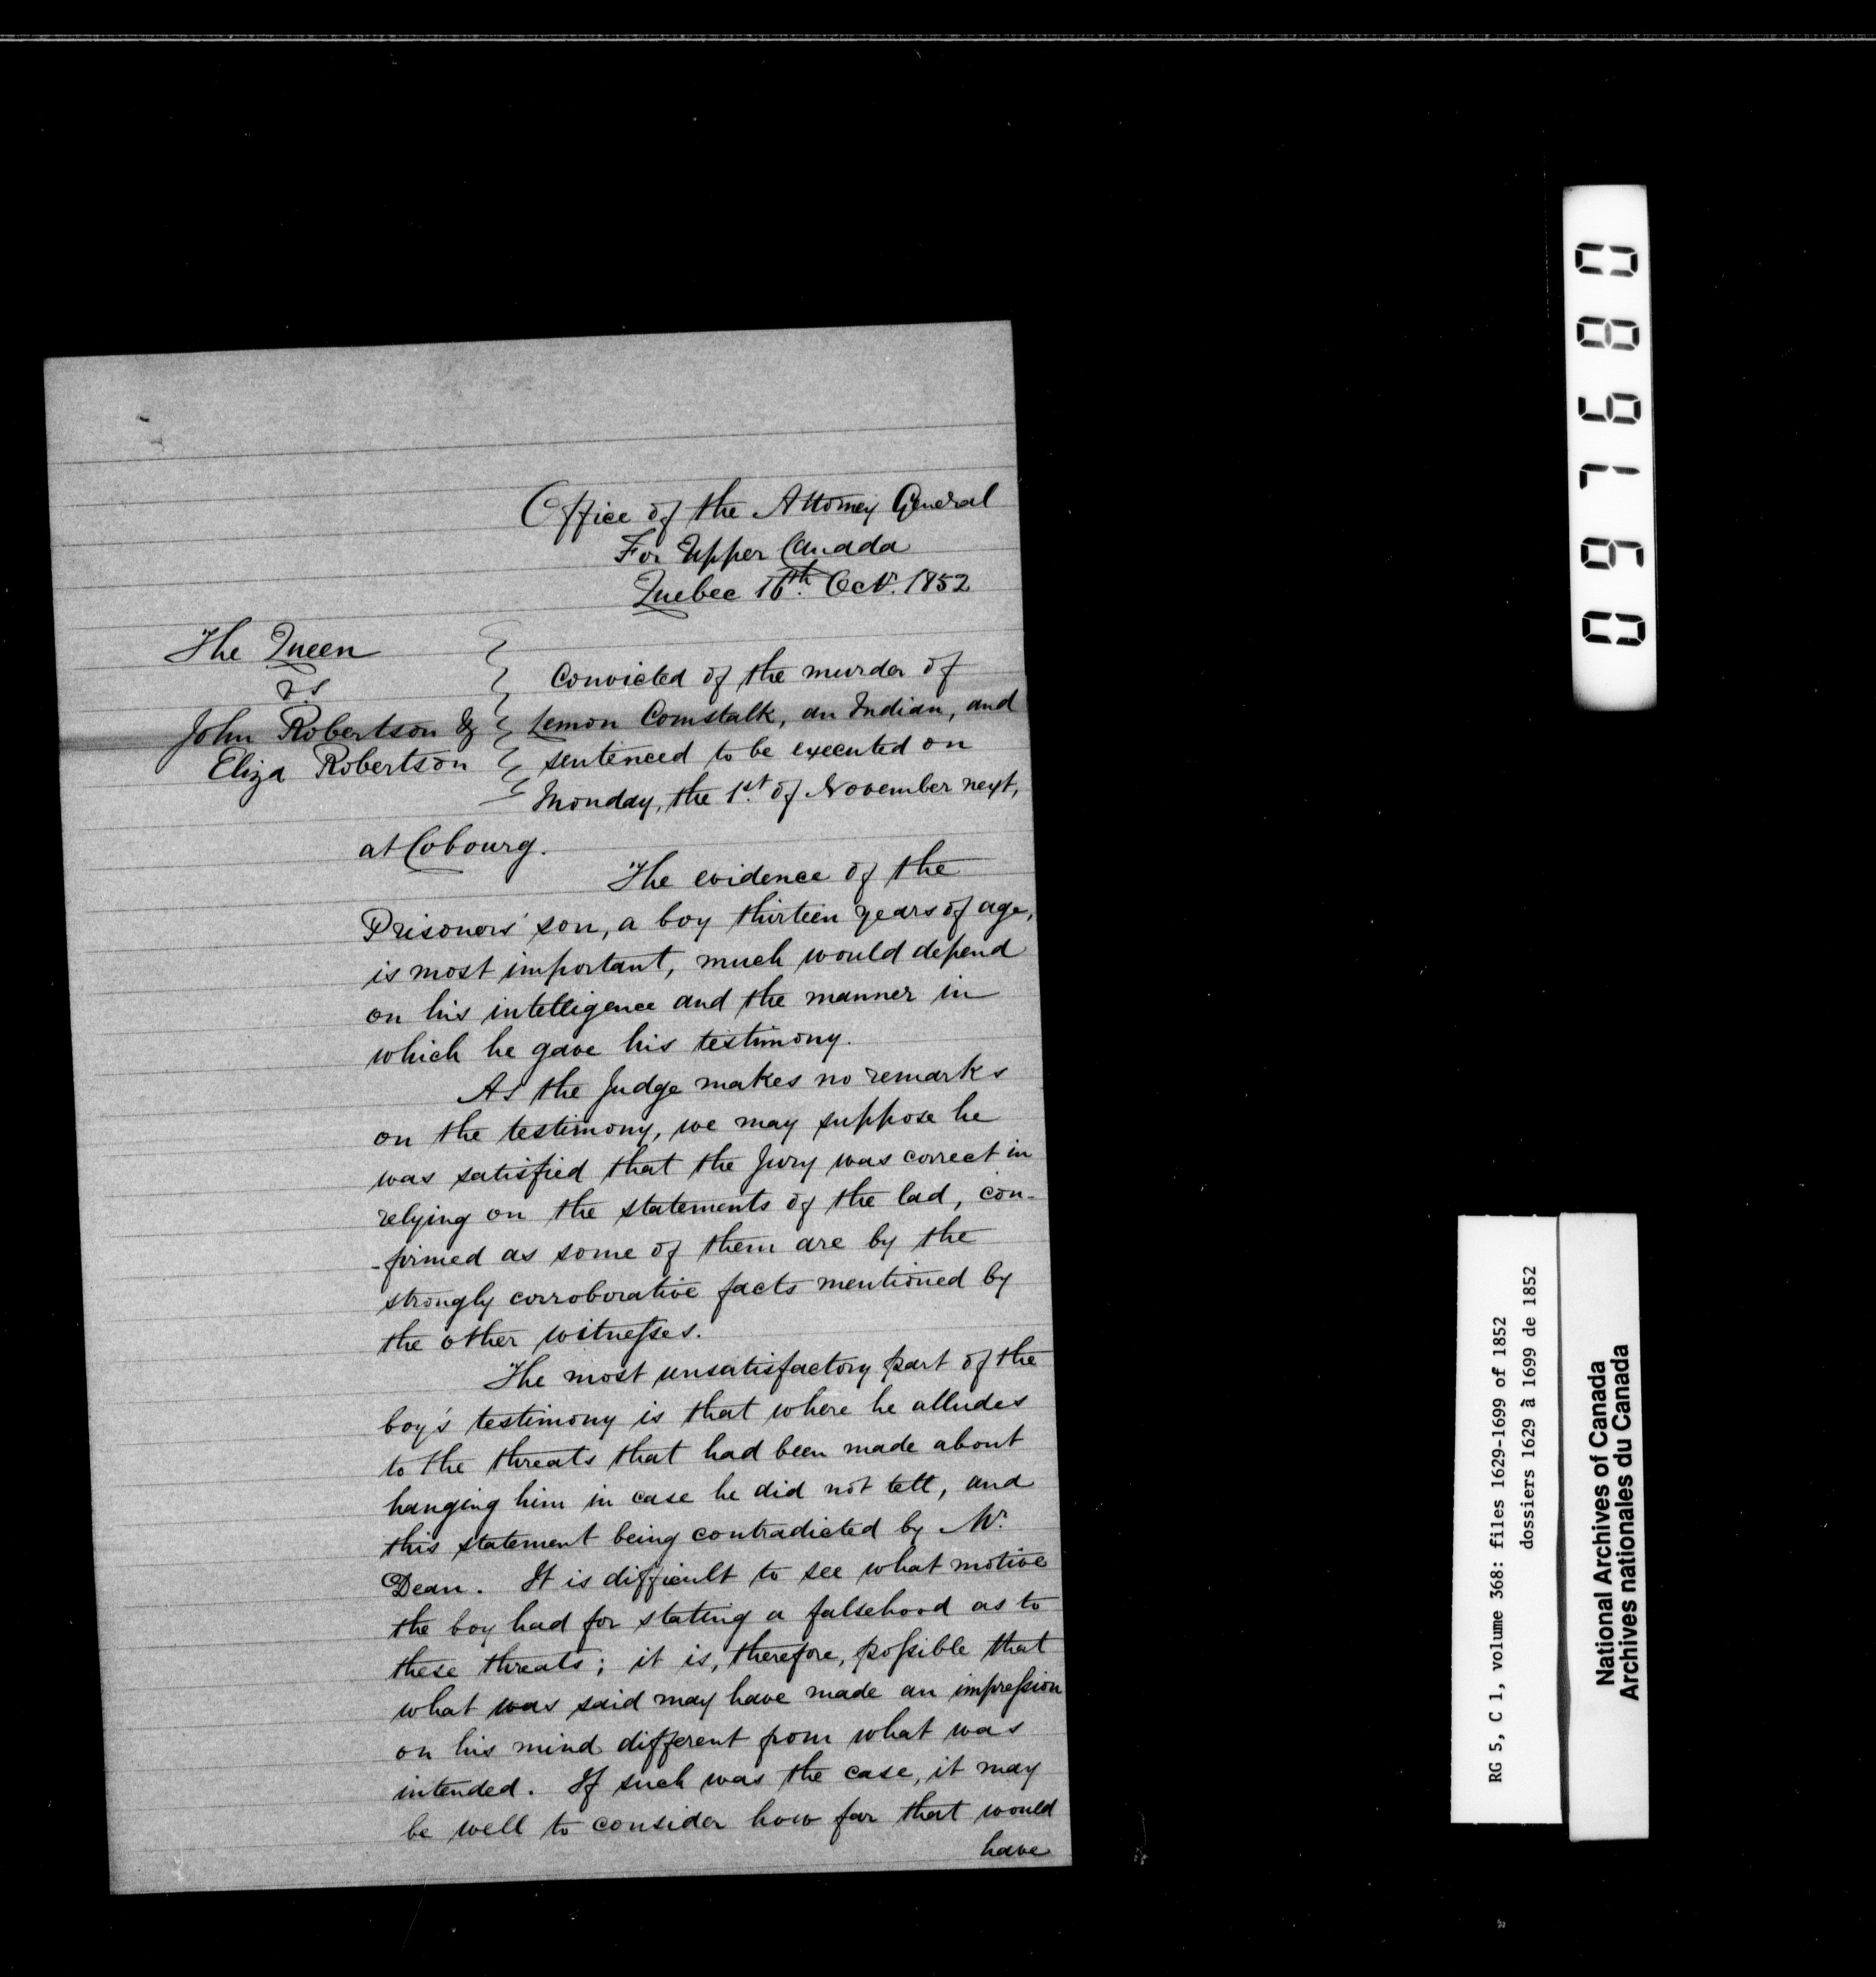 Office of the Attorney General
For Upper Canada
Quebec 16th. Oct. 1852
The Queen
vs
John Robertson &
Eliza Robertson
Convicted of the murder of
Lemon Comstalk, an Indian, and
sentenced to be executed on
Monday, the 1st. of November next,
at Cobourg.
The evidence of the
Prisoners' son, a boy thirteen years of age,
is most important, much would depend
on his intelligence and the manner in
which he gave his testimony.
As the Judge makes no remarks
on the testimony, we may suppose he
was satisfied that the Jury was correct in
relying on the statements of the lad, con-
-firmed as some of them are by the
strongly corroborative facts mentioned by
the other witnesses.
The most unsatisfactory part of the
boy's testimony is that where he alludes
to the threats that had been made about
hanging him in case he did not tell, and
this statement being contradicted by Mr.
Dean. It is difficult to see what motive
the boy had for stating a falsehood as to
these threats; it is, therefore, possible that
what was said may have made an impression
on his mind different from what was
intended. If such was the case, it may
be well to consider how far that would
have
097680
RG 5, C 1, volume 368: files 1629-1699 of 1852
dossiers 1629 à 1699 de 1852
National Archives of Canada
Archives nationales du Canada